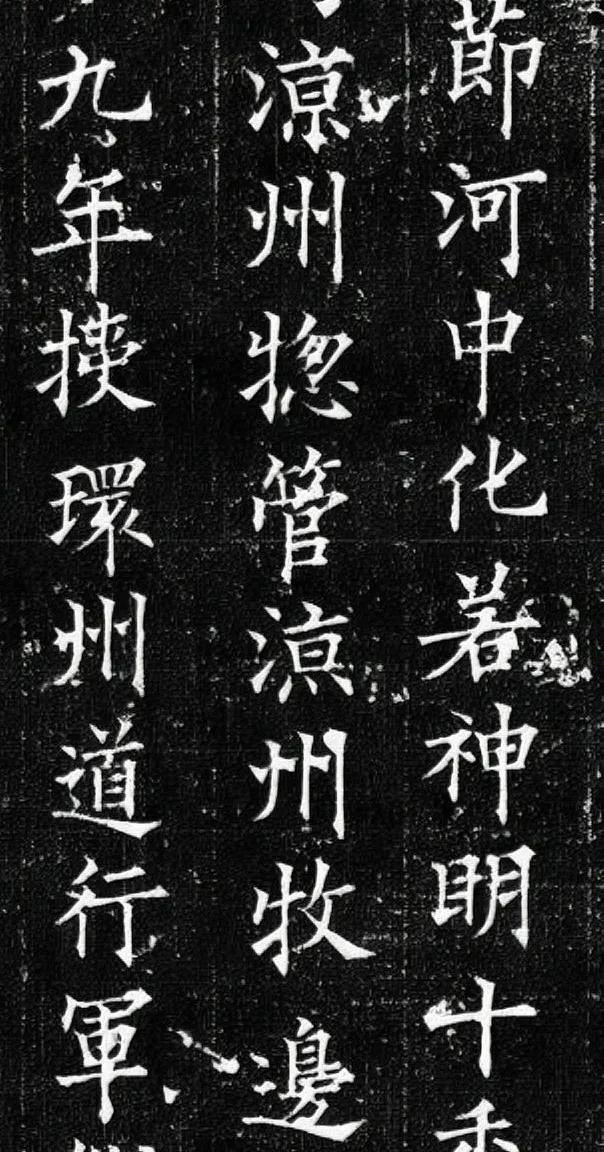 節河中化若神明十
涼州揔管涼州牧邊
九年授環州道行軍